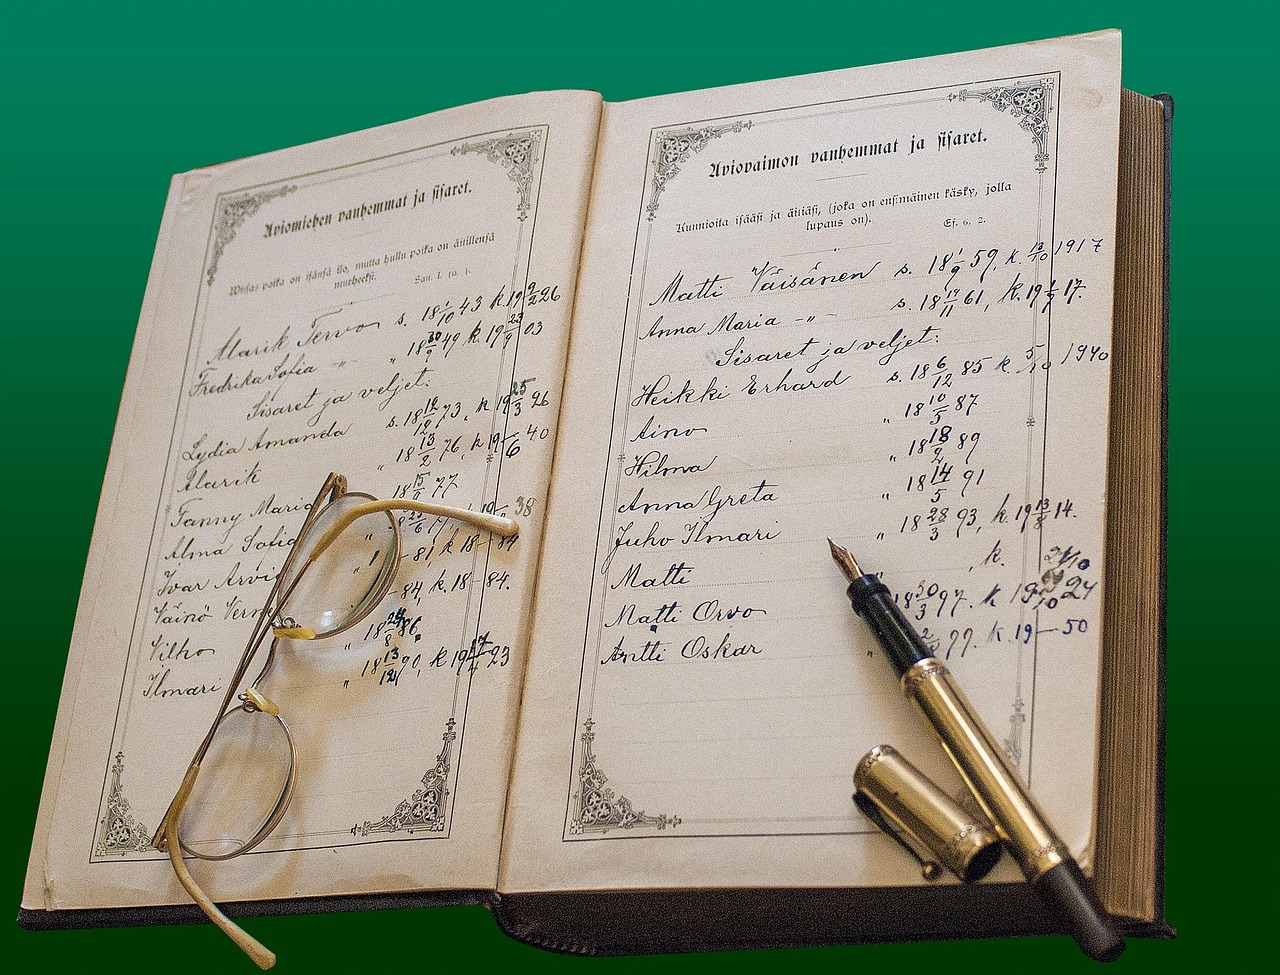 Aviomiehen vanhemmat ja sisaret.
Wiisas poika on isänsä ilo, mutta hullu poika on äitillensä
murheeksi. San. 1. 10. 1.
Alarik Tervo s. 18 1/10 43 k. 19 9/2 26
Fredrika Sofia -"- " 18 30/9 49 k 19 23/9 03
Sisaret ja veljet:
Lydia Amanda s. 18 73, k 19 25/3 26
Alarik " 18 13/2 76, k 19 –/6 40
Fanny Maria 18 15/ 77
Alma Sofia 38
Ivar Arvi " 1 – 81, k 18 – 84
Väinö Vern – 84, k. 18 – 84.
Vilho 18 86
Ilmari " 18 13/12 90, k 19 23
Aviovaimon vanhemmat ja sisaret.
Kunnioita isääsi ja äitiäsi, (joka on ensimäinen käsky, jolla
lupaus on). Ef. 6, 2.
Matti Väisänen s. 18 1/9 59, k. 13/10 1917
Anna Maria -"- s. 18 19/11 61, k. 19 17.
Sisaret ja veljet:
Heikki Erhard s. 18 6/12 85 k 5/10 1940
Aino " 18 10/5 87
Hilma " 18 18/2 89
Anna Greta " 18 14/5 91
Juho Ilmari " 18 28/3 93, k. 19 13/8 14.
Matti , k.
Matti Orvo 18 30/3 97. k 19 /10 24
Antti Oskar " 99. k. 19 – 50